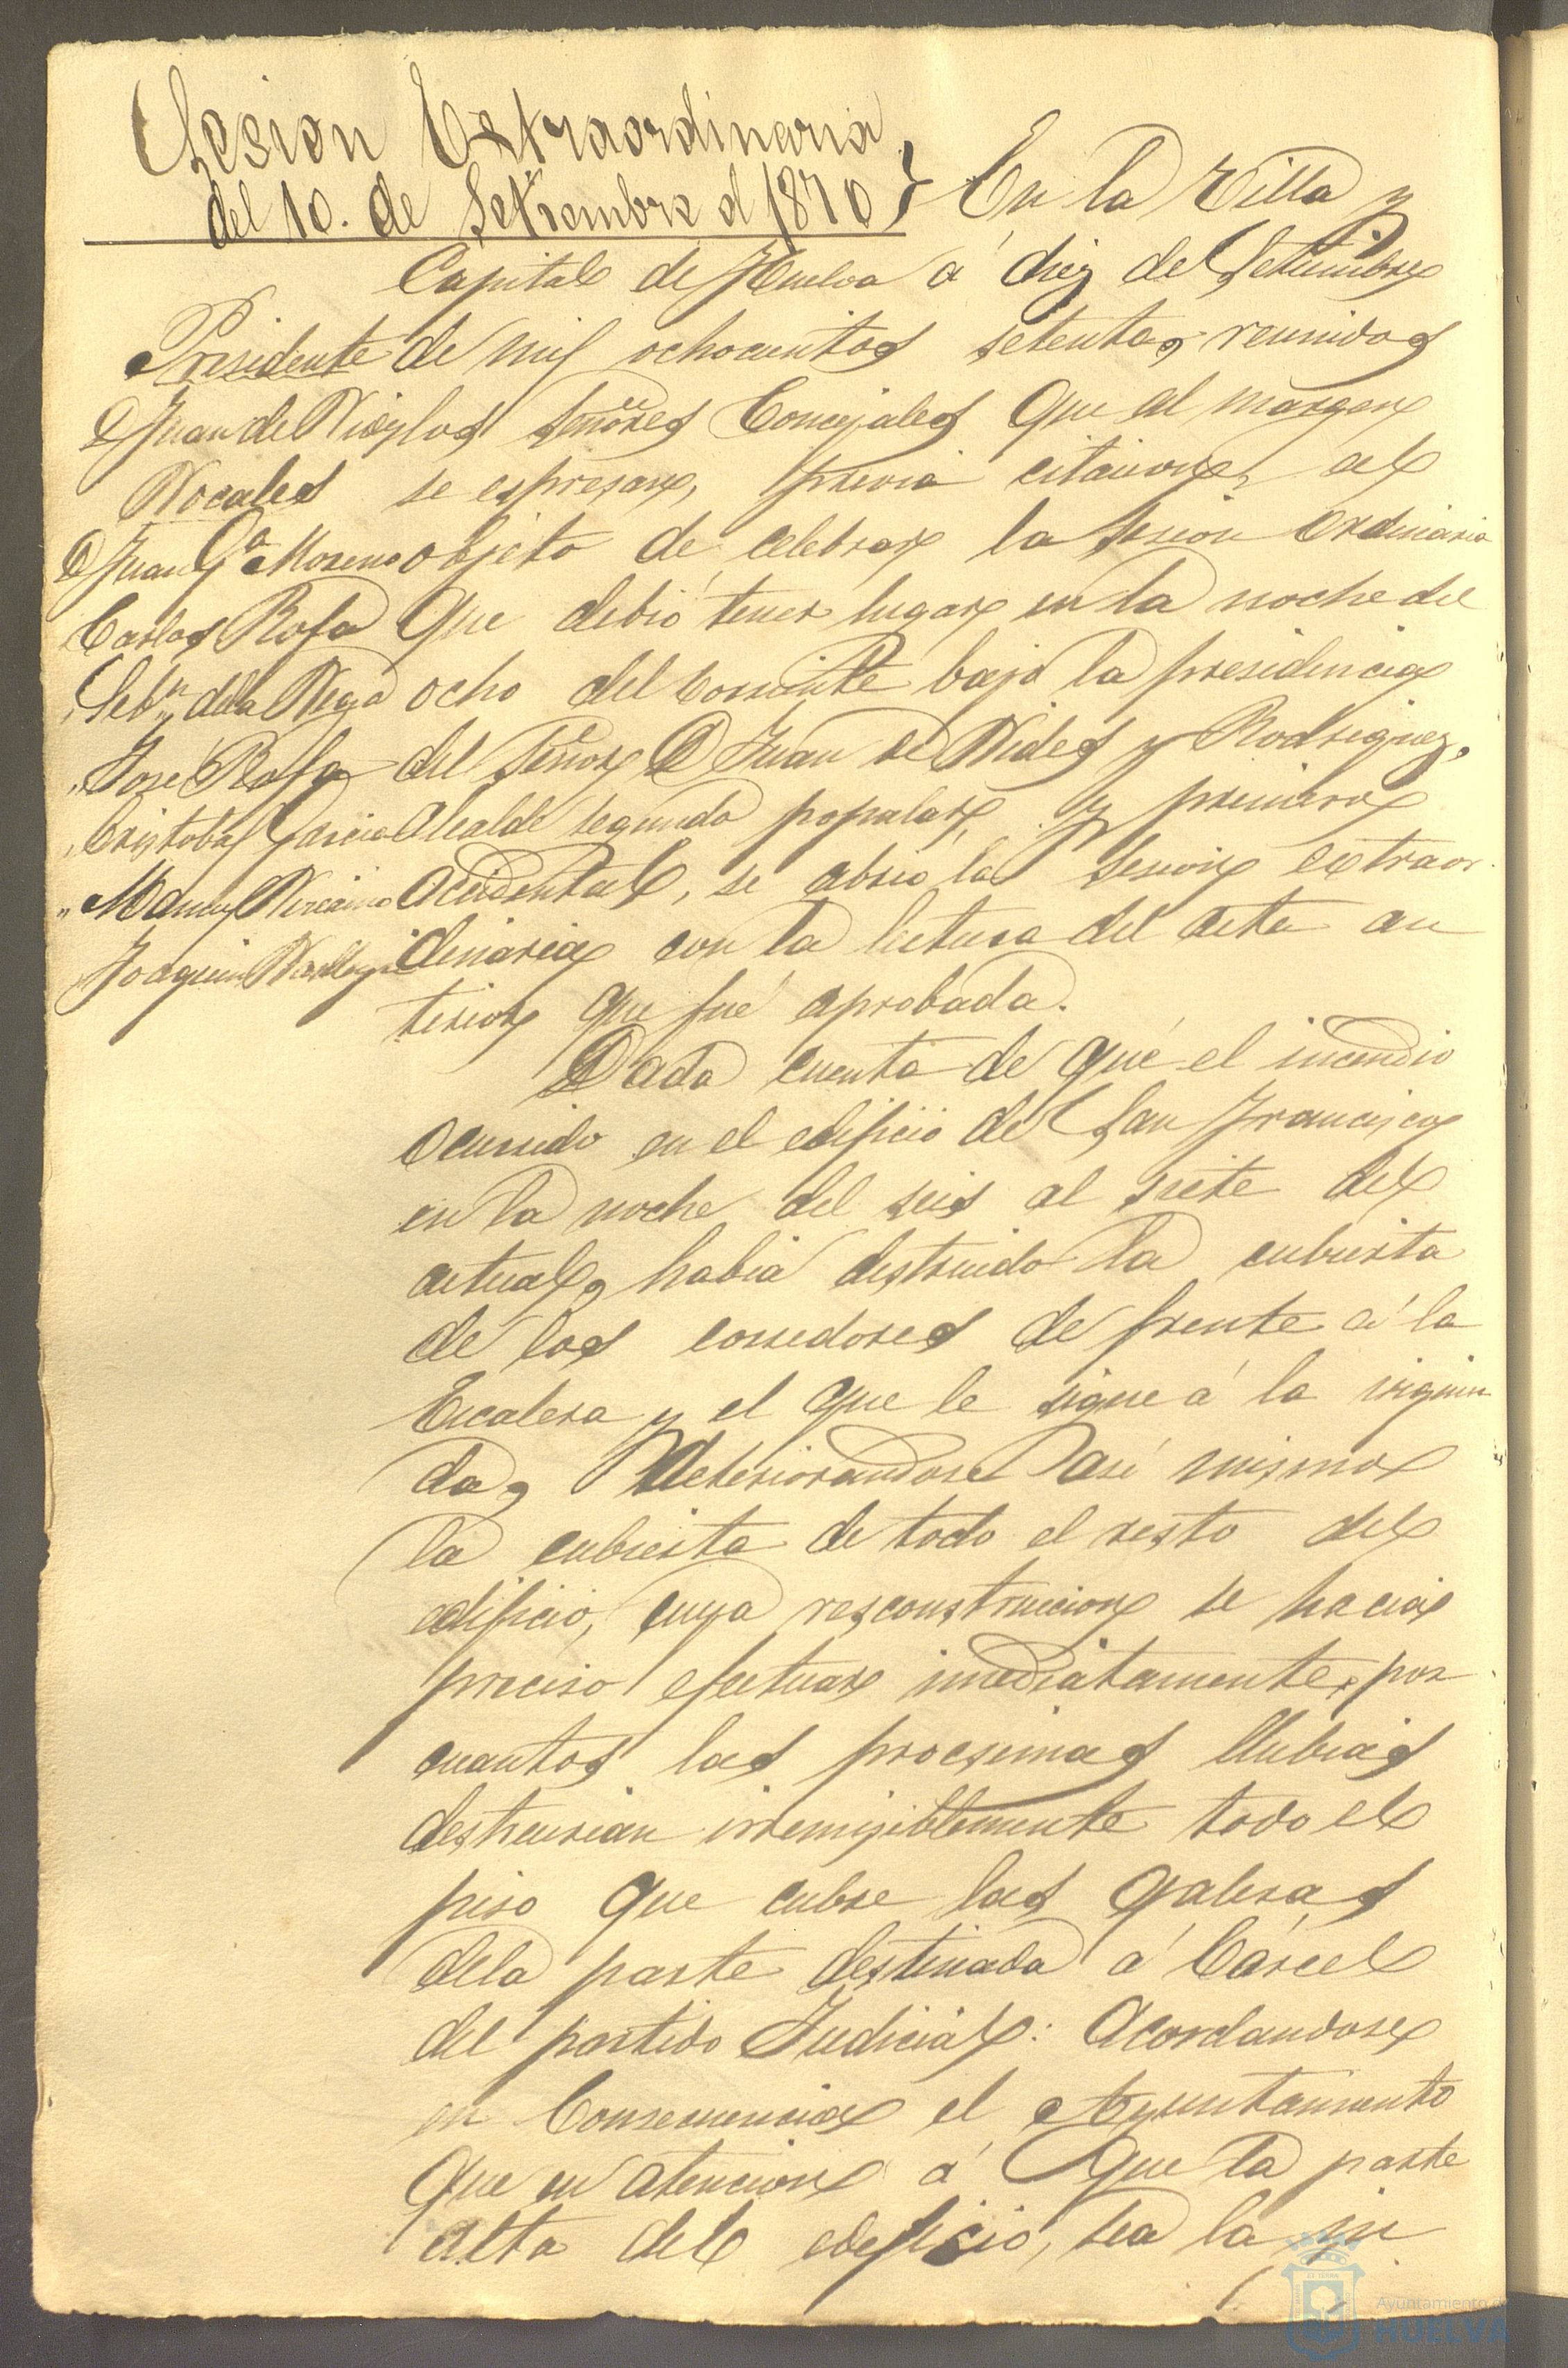 Sesion Extraordinaria
del 10. de Setiembre d 1870
En la Villa y
Capital de Huelva á diez de Setiembre
de mil ochocientos setenta, reunidos
los Señores Concejales que al margen
se espresan, previa citacion, al
objeto de celebrar la Sesion Ordinaria
que debió tener lugar en la noche del
ocho del corriente bajo la presidencia
del Señor D Juan de Vides y Rodriguez,
Alcalde segundo popular, y primero
accidental, se abrió la Sesion extraor
dinaria con la lectura del acta an
terior que fué aprobada.
Presidente
D Juan de
Vocales
D Juan Gª Moreno
Carlos Rofa
" Sebn dela Vega
" José Rofa
" Cristobal Garcia
" Manuel Vizcaino
" Joaquin
Dada cuenta de que el incendio
ocurrido en el edificio de San Francisco
en la noche del seis al siete del
actual, habia destruido la cubierta
de los corredores de frente á la
Escalera y el que le sigue á la izquier
da, deteriorandose asi mismo
la cubierta de todo el resto del
edificio, cuya resconstruccion se hacia
preciso efectuar imediatamente, por
cuantos las procsimas llubias
destruirian irremisiblemente todo el
piso que cubre las galeras
dela parte destinada á Cárcel
del partido Judicial: Acordandose
en Consecuencia el Ayuntamiento
que en atencion á que la parte
alta del edeficio, sea la in
Ayuntamiento de
HUELVA